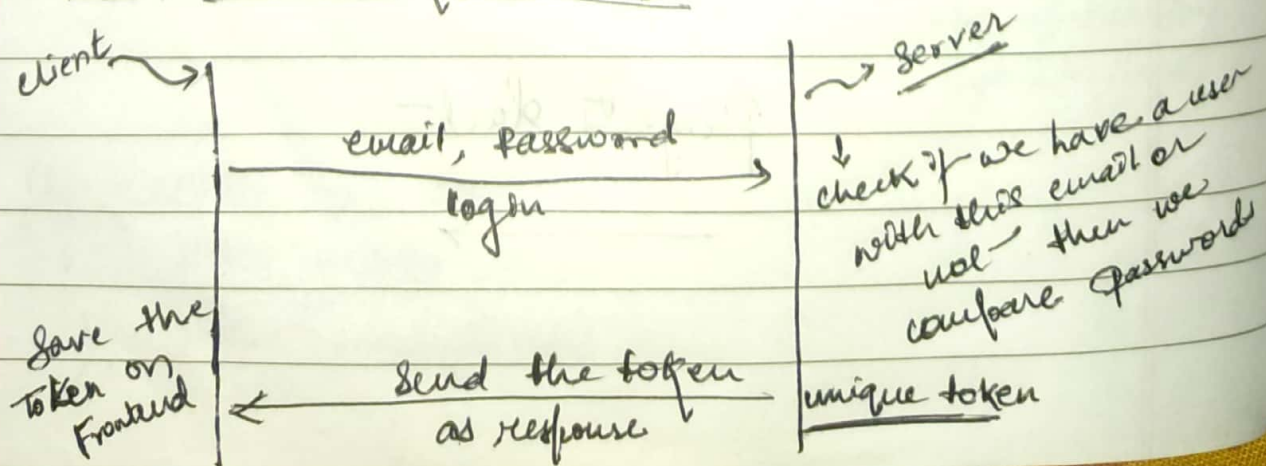 client
Server
email, password
login
check if we have a user
with this email or
not then we
compare password
Save the
Token on
Frontend
send the token
as response
unique token